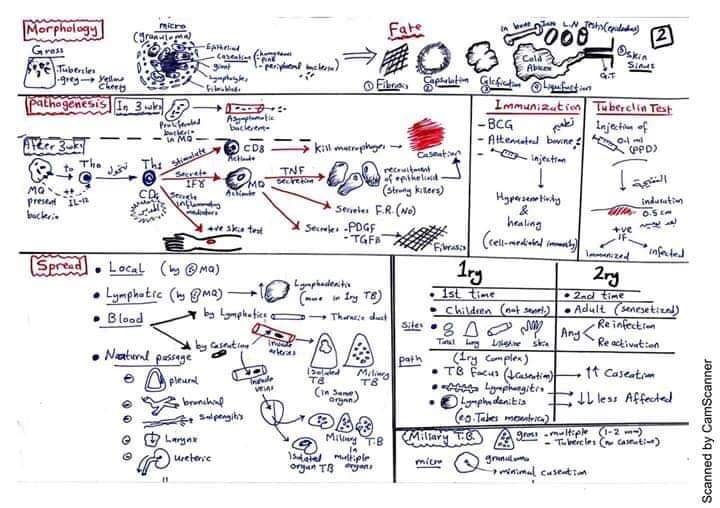 Morphology
Gross
Tubercles
-grey → yellow
Cheesy
micro
(granuloma)
Epithelioid
Caseation
-homogenous
-pink
-peripheral bacteria
giant
Lymphocytes
Fibroblasts
Fate
① Fibrosis
Capsulation
②
Calcification
③
in bone
L.N
Testis (epididymis)
Cold
Abcess
④ Liquefaction
⑤ Skin
Sinus
G.T
2
Pathogenesis
In 3 wks
Proliferated
bacteria
in MQ
Asymptomatic
bacteremia
After 3 wks
MQ
present
bacteria
++
IL-12
Tho
Th1
CD4
Stimulate
CD8
Activate
Kill macrophages
Caseation
Secrete
IFγ
MQ
Activate
TNF
secretion
recruitment
of epithelioid
(strong killers)
Secretes F.R. (No)
Secretes -PDGF
-TGFB
Fibrosis
Secrete
inflammatory
mediators
+ve skin test
Immunization
- BCG
- Attenuated bovine
- injection
Hypersensitivity
&
healing
(cell-mediated immunity)
Tuberclin Test
Injection of
0.1 ml
(PPD)
induration
0.5 cm
+ve
IF
Immunized
infected
Spread
• Local (by MQ)
• Lymphatic (by MQ)
Lymphadenitis
(more in 1ry TB)
• Blood
by Lymphatics
Thoracic duct
by Caseation
invade
arteries
Isolated
TB
(in same)
organ
Miliary
TB
invade
veins
Miliary T.B
in
multiple
organs
Isolated
organ TB
• Natural passage
pleural
bronchial
Salpengitis
Larynx
Ureteric
1ry
2ry
• 1st time
• 2nd time
• Children (not senst.)
• Adult (senesetized)
Sites
Tonsil
Lung
skin
Any
Reinfection
Reactivation
path
(1ry complex)
• TB Focus (↓caseation)
↑↑ Caseation
• Lymphangitis
• Lymphadenitis
↓↓ less Affected
(e.g. Tabes mesentrica)
Miliary T.B.
gross - multiple (1-2 mm)
- Tubercles (no caseation)
micro
granuloma
minimal caseation
Scanned by CamScanner